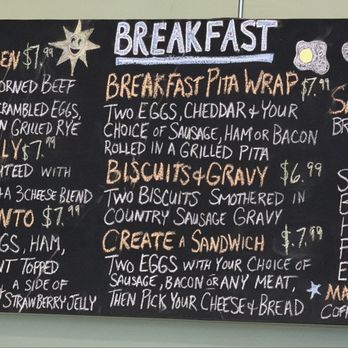 BREAKFAST
EN $7.99
ORNED BEEF
CRAMBLED EGGS,
N GRILLED RYE
LY $7.99
HTED WITH
& A 3 CHEESE BLEND
NTO $7.99
GGS, HAM,
NT TOPPED
A SIDE OF
STRAWBERRY JELLY
BREAKFAST PITA WRAP $7.99
TWO EGGS, CHEDDAR & YOUR
CHOICE OF SAUSAGE, HAM OR BACON
ROLLED IN A GRILLED PITA
BISCUITS & GRAVY $6.99
TWO BISCUITS SMOTHERED IN
COUNTRY SAUSAGE GRAVY
CREATE A SANDWICH $7.99
TWO EGGS WITH YOUR CHOICE OF
SAUSAGE, BACON OR ANY MEAT,
THEN PICK YOUR CHEESE & BREAD
MA
COFF